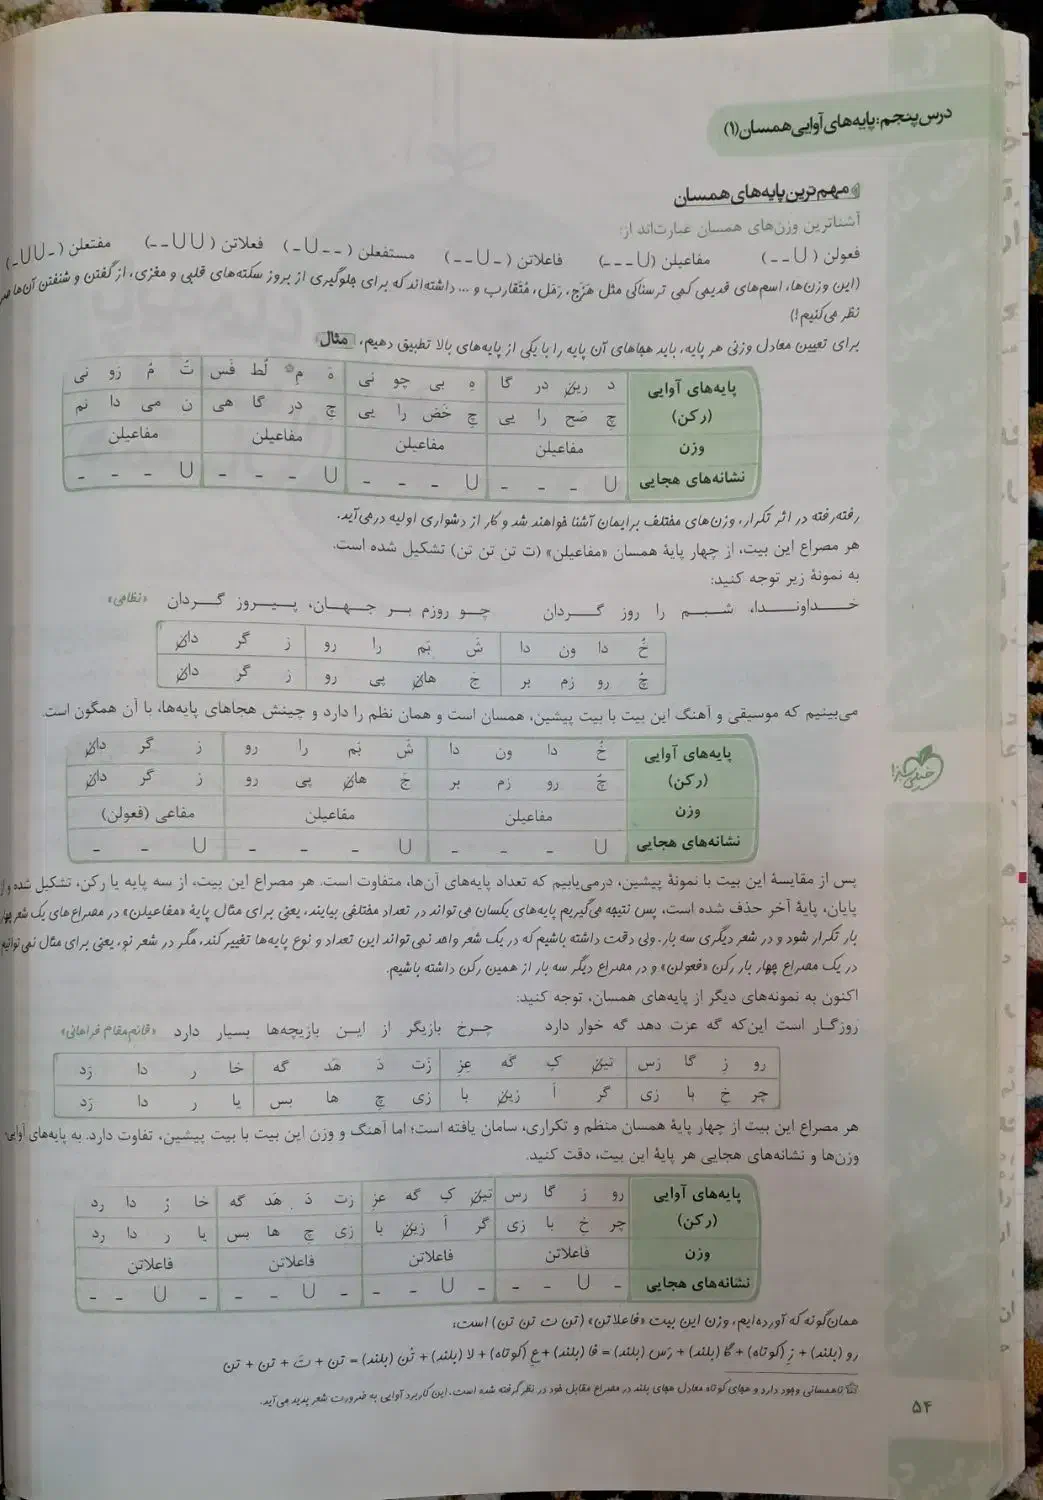 درس پنجم: پایه‌های آوایی همسان (۱)
مهم‌ترین پایه‌های همسان
آشناترین وزن‌های همسان عبارت‌اند از:
فعولن (U – –) مفاعیلن (U – – –) فاعلاتن (– U – –) مستفعلن (– – U –) فعلاتن (U U – –) مفتعلن (– U U –)
(این وزن‌ها، اسم‌های قدیمی کمی ترسناکی مثل هَزَج، رَمَل، مُتَقارب و ... داشته‌اند که برای جلوگیری از بروز سکته‌های قلبی و مغزی، از گفتن و شنفتن آن‌ها
نظر می‌کنیم!)
برای تعیین معادل وزنی هر پایه، باید هجاهای آن پایه را با یکی از پایه‌های بالا تطبیق دهیم. مثال
پایه‌های آوایی د رین در گا هِ بی چو نی هَ مِ* لُط فَس تُ مُ زو نی
(رکن) چِ صَح را یی چِ خَض را یی چِ در گا هی ن می دا نم
وزن مفاعیلن مفاعیلن مفاعیلن مفاعیلن
نشانه‌های هجایی U – – – U – – – U – – – U – – –
رفته‌رفته در اثر تکرار، وزن‌های مختلف برایمان آشنا خواهند شد و کار از دشواری اولیه درمی‌آید.
هر مصراع این بیت، از چهار پایهٔ همسان «مفاعیلن» (ت تن تن تن) تشکیل شده است.
به نمونهٔ زیر توجه کنید:
خـــداونـــدا، شـــبم را روز گـــردان چـــو روزم بـــر جـــهـان، پـــیـروز گـــردان «نظامی»
خُ دا ون دا شَ بَم را رو ز گر دان
چُ رو زم بر جَ هان پی رو ز گر دان
می‌بینیم که موسیقی و آهنگ این بیت با بیت پیشین، همسان است و همان نظم را دارد و چینش هجاهای پایه‌ها، با آن همگون است.
پایه‌های آوایی خُ دا ون دا شَ بَم را رو ز گر دان
(رکن) چُ رو زم بر جَ هان پی رو ز گر دان
وزن مفاعیلن مفاعیلن مفاعی (فعولن)
نشانه‌های هجایی U – – – U – – – U – –
پس از مقایسهٔ این بیت با نمونهٔ پیشین، درمی‌یابیم که تعداد پایه‌های آن‌ها، متفاوت است. هر مصراع این بیت، از سه پایه یا رکن، تشکیل شده و از
پایان، پایهٔ آخر حذف شده است. پس نتیجه می‌گیریم پایه‌های یکسان می‌تواند در تعداد مختلفی بیایند، یعنی برای مثال پایهٔ «مفاعیلن» در مصراع‌های یک شعر چهار
بار تکرار شود و در شعر دیگری سه بار. ولی دقت داشته باشیم که در یک شعر واحد نمی‌تواند این تعداد و نوع پایه‌ها تغییر کند، مگر در شعر نو، یعنی برای مثال نمی‌توانیم
در یک مصراع چهار بار رکن «فعولن» و در مصراع دیگر سه بار از همین رکن داشته باشیم.
اکنون به نمونه‌های دیگر از پایه‌های همسان، توجه کنید:
روزگـار است این‌که گه عزت دهد گه خوار دارد چـــرخ بازیگر از ایـــن بازیچه‌ها بسیار دارد «قائم‌مقام فراهانی»
رو زِ گا رَس تین کِ گَه عِز زَت دَ هَد گَه خا ر دا رَد
چر خِ با زی گر اَ زین با زی چِ ها بس یا ر دا رَد
هر مصراع این بیت از چهار پایهٔ همسان منظم و تکراری، سامان یافته است؛ اما آهنگ و وزن این بیت با بیت پیشین، تفاوت دارد. به پایه‌های آوایی،
وزن‌ها و نشانه‌های هجایی هر پایهٔ این بیت، دقت کنید.
پایه‌های آوایی رو ز گا رس تین کِ گه عز زت دَ هَد گه خا رُ دا رد
(رکن) چر خِ با زی گر اَ زین با زی چِ ها بس یا ر دا رد
وزن فاعلاتن فاعلاتن فاعلاتن فاعلاتن
نشانه‌های هجایی – U – – – U – – – U – – – U – –
همان‌گونه که آورده‌ایم، وزن این بیت «فاعلاتن» (تن ت تن تن) است:
رو (بلند) + زِ (کوتاه) + گا (بلند) + رَس (بلند) = فا (بلند) + عِ (کوتاه) + لا (بلند) + تُن (بلند) = تن + تَ + تن + تن
ناهمسانی وجود دارد و هجای کوتاه معادل هجای بلند در مصراع مقابل خود در نظر گرفته شده است. این کاربرد آوایی به ضرورت شعر پدید می‌آید.
خیلی سبز
۵۴